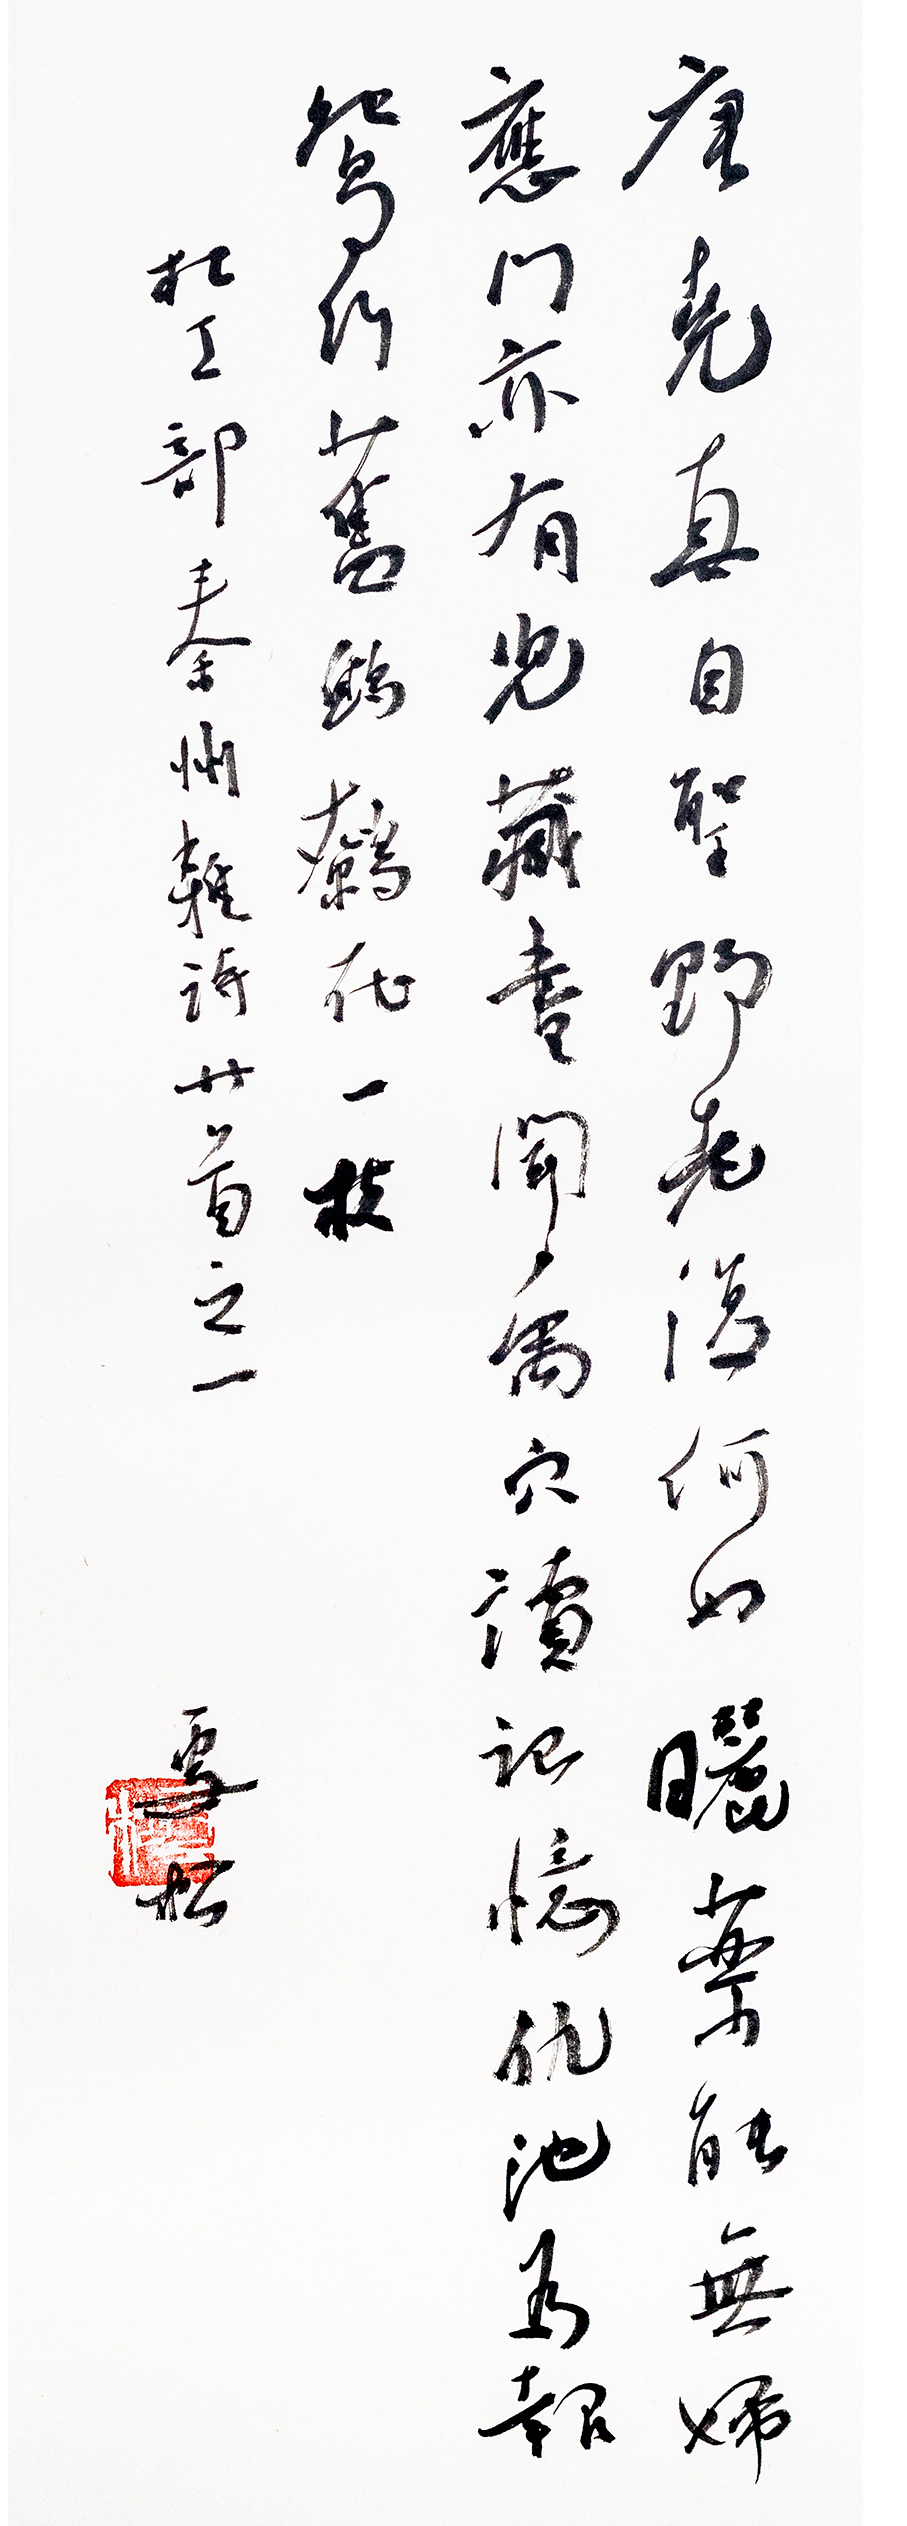 唐堯真自聖野老復何知曬藥能無婦
應門亦有兒藏書聞禹穴讀記憶仇池為報
鴛行舊鷦鷯在一枝
杜工部秦州雜詩廿首之一
雪松